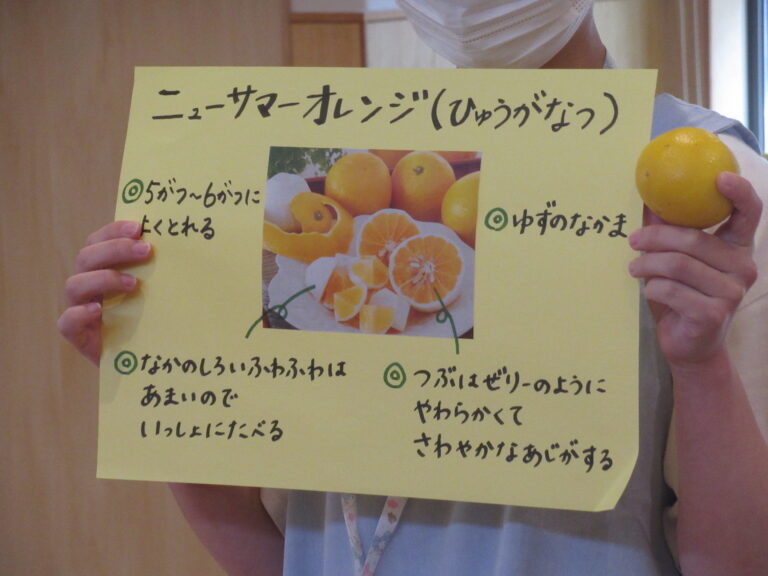 ニューサマーオレンジ(ひゅうがなつ)
◎5がつ～6がつに
よくとれる
◎ゆずのなかま
◎なかのしろいふわふわは
あまいので
いっしょにたべる
◎つぶはぜリーのように
やわらかくて
さわやかなあじがする